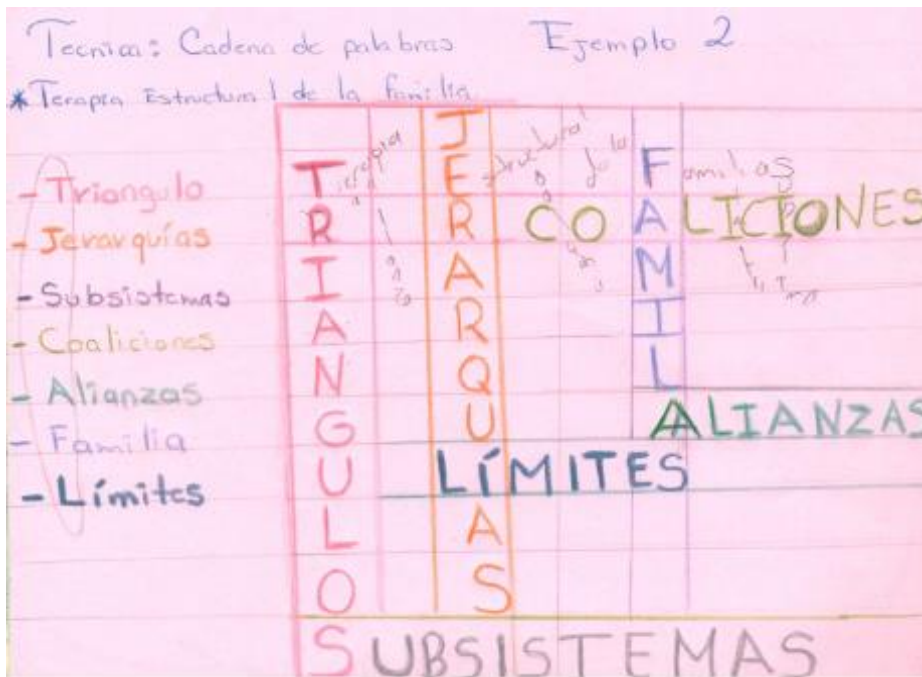 Tecnica: Cadena de palabras Ejemplo 2
*Terapia Estructural de la familia
- Triangulo
- Jerarquías
- Subsistemas
- Coaliciones
- Alianzas
- Familia
- Límites
TRIANGULOS
JERARQUÍAS
COALICIONES
FAMILA
ALIANZAS
LÍMITES
SUBSISTEMAS